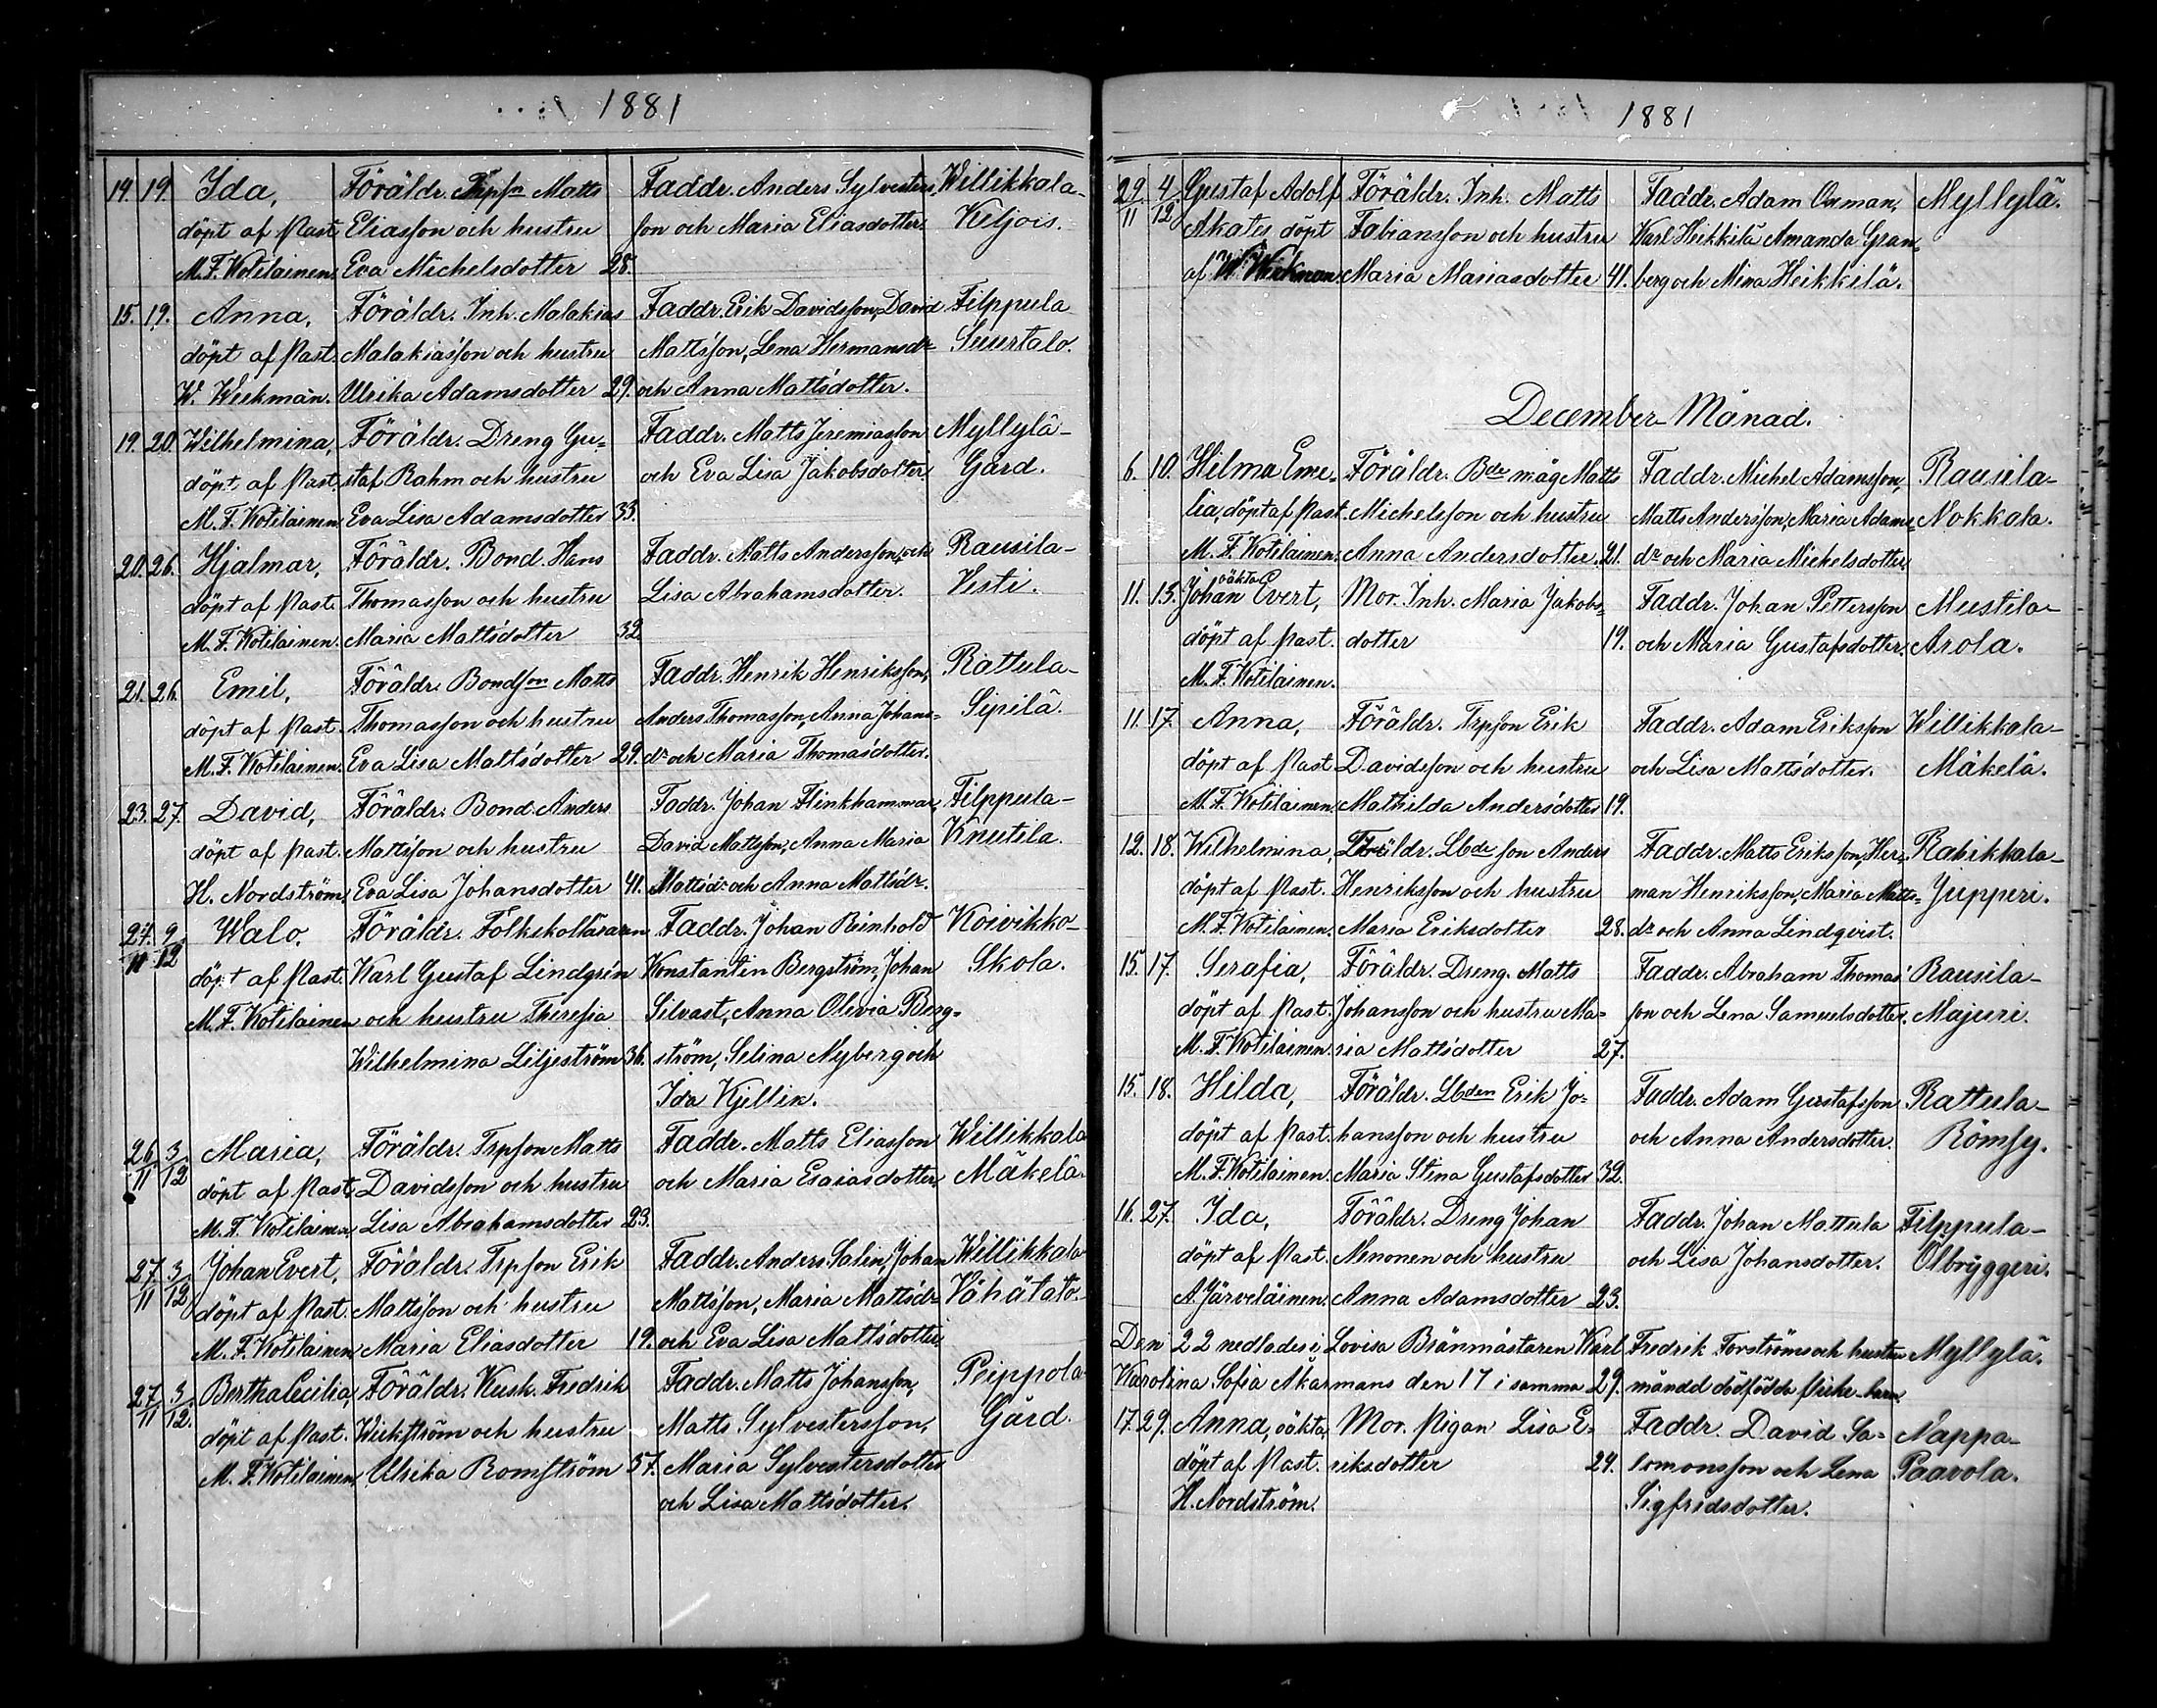 1881
14. 19. Ida, Föräldr. Trpson Matts Faddr. Anders Sylvesters- Willikkala-
döpt af Past. Eliasson och hustru son och Maria Eliasdotter. Kiljois.
M. F. Kotilainen. Eva Michelsdotter 28.
15. 19. Anna, Föräldr. Inh. Malakias Faddr. Erik Davidsson, David Filppula
döpt af Past. Malakiasson och hustru Mattsson, Lena Hermansdr Suurtalo.
W. Wiikman. Ulrika Adamsdotter 29. och Anna Mattsdotter.
19. 20. Wilhelmina, Föräldr. Dreng Gu- Faddr. Matts Jeremiasson Myllylä-
döpt af Past. staf Rahm och hustru och Eva Lisa Jakobsdotter. Gård.
M. F. Kotilainen. Eva Lisa Adamsdotter 33.
20. 26. Hjalmar, Föräldr. Bond. Hans Faddr. Matts Andersson, och Rausila-
döpt af Past. Thomasson och hustru Lisa Abrahamsdotter. Vesti.
M. F. Kotilainen. Maria Mattsdotter 32
21. 26. Emil, Föräldr. Bondson Matts Faddr. Henrik Henriksson, Rattula-
döpt af Past. Thomasson och hustru Anders Thomasson, Anna Johans- Sipilä.
M. F. Kotilainen. Eva Lisa Mattsdotter 29. dr och Maria Thomasdotter.
23. 27. David, Föräldr. Bond. Anders Faddr. Johan Flinkhammar, Filppula-
döpt af Past. Mattsson och hustru David Mattsson, Anna Maria Knutila.
H. Nordström. Eva Lisa Johansdotter 41. Mattsdr och Anna Mattsdr.
27. 9. Walo, Föräldr. Folkskolläraren Faddr. Johan Reinhold Koivikko-
11 12 döpt af Past. Karl Gustaf Lindgrén Konstantin Bergström, Johan Skola.
M. F. Kotilainen och hustru Theresia Silvast, Anna Olivia Berg-
Wilhelmina Liljeström 36. ström, Selina Nyberg och
Ida Kjellin.
26. 3. Maria, Föräldr. Trpson Matts Faddr. Matts Eliasson Willikkala
11 12 döpt af Past. Davidsson och hustru och Maria Esaiasdotter. Mäkelä.
M. F. Kotilainen. Lisa Abrahamsdotter 23.
27. 3. Johan Evert, Föräldr. Trpson Erik Faddr. Anders Salén, Johan Willikkala
11 12 döpt af Past. Mattsson och hustru Mattsson, Maria Mattsdr Vähätalo.
M. F. Kotilainen. Maria Eliasdotter 19. och Eva Lisa Mattsdotter.
27. 3. Bertha Cecilia, Föräldr. Kusk. Fredrik Faddr. Matts Johansson, Peippola
11 12. döpt af Past. Wiikström och hustru Matts Sylvestersson, Gård.
M. F. Kotilainen. Ulrika Romström 37. Maria Sylvestersdotter
och Lisa Mattsdotter.
1881
29. 4. Gustaf Adolf Föräldr. Inh. Matts Faddr. Adam Oxman, Myllylä.
11 12 Akates, döpt Fabiansson och hustru Karl Heikkilä Amanda Gran-
af W. Wiikman. Maria Mariasdotter 41. berg och Mina Heikkilä.
December Månad.
6. 10. Hilma Eme- Föräldr. Bde måg Matts Faddr. Michel Adamsson, Rausila-
lia, döpt af Past. Michelsson och hustru Matts Andersson, Maria Adams- Nokkala.
M. F. Kotilainen. Anna Andersdotter. 21. dr och Maria Michelsdotter
oäkta
11. 13. Johan Evert, Mor. Inh. Maria Jakobs- Faddr. Johan Pettersson Mustila-
döpt af Past. dotter 19. och Maria Gustafsdotter. Arola.
M. F. Kotilainen.
11. 17. Anna, Föräldr. Trpson Erik Faddr. Adam Eriksson Willikkala-
döpt af Past. Davidsson och hustru och Lisa Mattsdotter. Mäkelä.
M. F. Kotilainen. Mathilda Andersdotter 19.
12. 18. Wilhelmina, Föräldr. Lbde son Anders Faddr. Matts Eriksson, Her- Rahikkala-
döpt af Past. Henriksson och hustru man Henriksson, Maria Matts- Jupperi.
M. F. Kotilainen. Maria Eriksdotter 28. dr och Anna Lindqvist.
15. 17. Serafia, Föräldr. Dreng. Matts Faddr. Abraham Thomas- Rausila-
döpt af Past. Johansson och hustru Ma- son och Lena Samuelsdotter. Majuri.
M. F. Kotilainen. ria Mattsdotter 27.
15. 18. Hilda, Föräldr. Lbden Erik Jo- Faddr. Adam Gustafsson Rattula-
döpt af Past. hansson och hustru och Anna Andersdotter. Römsy.
M. F. Kotilainen. Maria Stina Gustafsdotter 32.
16. 27. Ida, Föräldr. Dreng Johan Faddr. Johan Mattula Filppula-
döpt af Past. Nenonen och hustru och Lisa Johansdotter. Ölbryggeri.
A. Järveläinen. Anna Adamsdotter 23.
Den 22 nedlades i Lovisa Bränmästaren Karl Fredrik Forströms och hustru Myllylä.
Karolina Sofia Åkermans den 17 i samma 29. månad dödfödda flicke-barn.
17. 29. Anna, oäkta, Mor. Pigan Lisa E- Faddr. David Sa- Nappa-
döpt af Past. riksdotter 24. lomonsson och Lena Paavola.
H. Nordström. Sigfridsdotter.